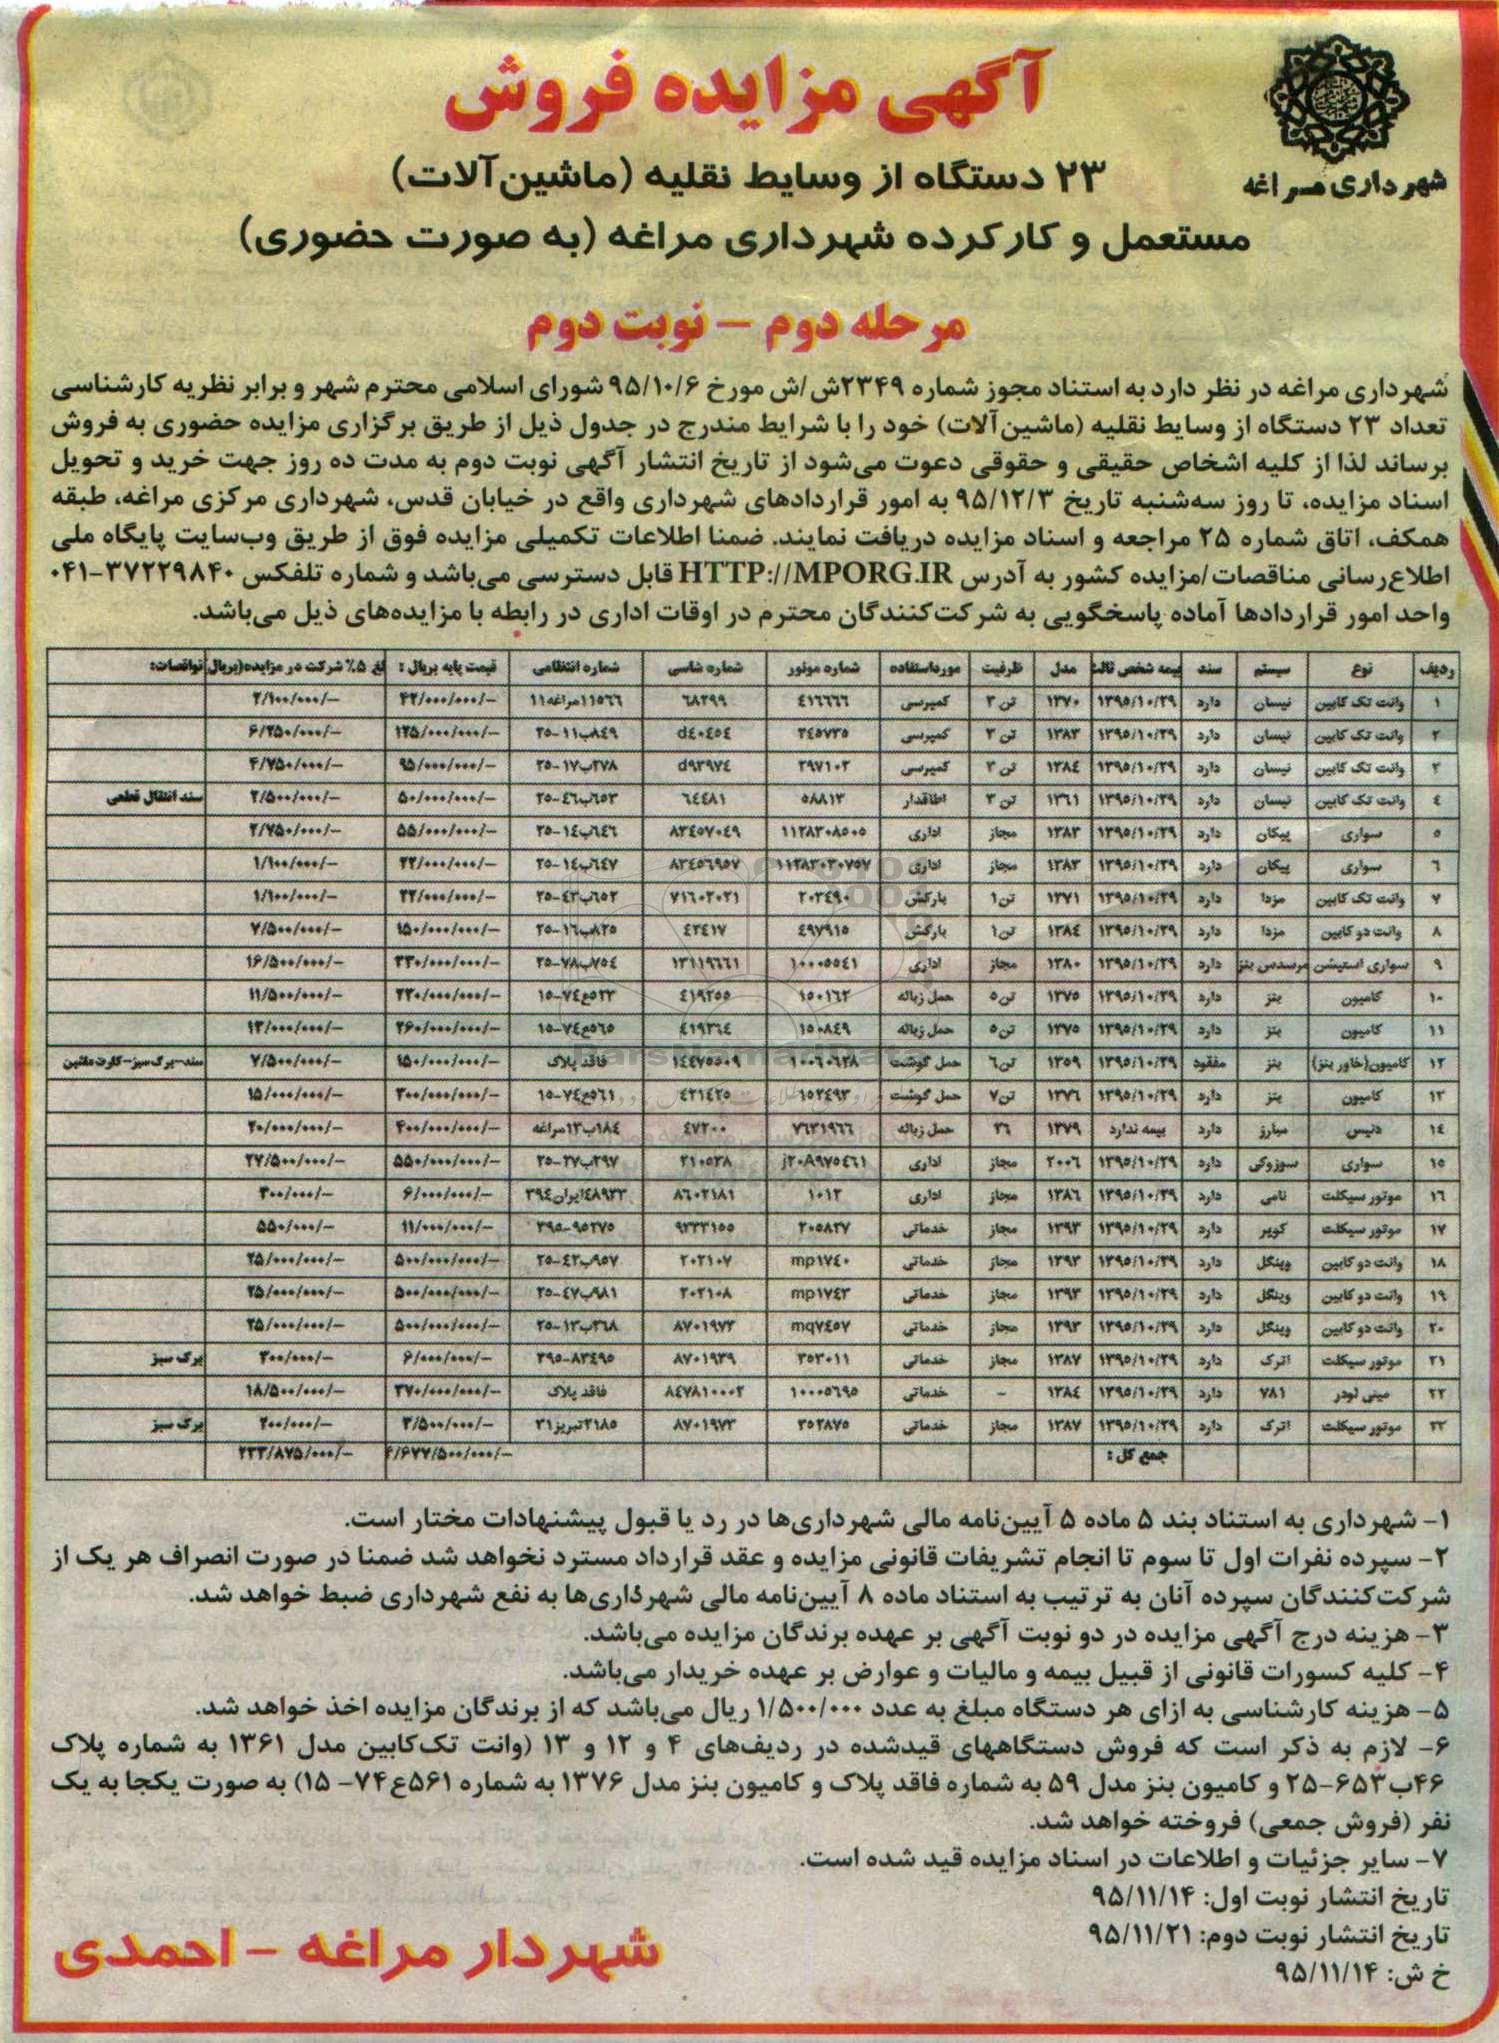 آگهی مزایده فروش
شهرداری مراغه
۲۳ دستگاه از وسایط نقلیه (ماشین‌آلات)
مستعمل و کارکرده شهرداری مراغه (به صورت حضوری)
مرحله دوم – نوبت دوم
شهرداری مراغه در نظر دارد به استناد مجوز شماره ۲۳۴۹ش/ش مورخ ۹۵/۱۰/۶ شورای اسلامی محترم شهر و برابر نظریه کارشناسی
تعداد ۲۳ دستگاه از وسایط نقلیه (ماشین‌آلات) خود را با شرایط مندرج در جدول ذیل از طریق برگزاری مزایده حضوری به فروش
برساند لذا از کلیه اشخاص حقیقی و حقوقی دعوت می‌شود از تاریخ انتشار آگهی نوبت دوم به مدت ده روز جهت خرید و تحویل
اسناد مزایده، تا روز سه‌شنبه تاریخ ۹۵/۱۲/۳ به امور قراردادهای شهرداری واقع در خیابان قدس، شهرداری مرکزی مراغه، طبقه
همکف، اتاق شماره ۲۵ مراجعه و اسناد مزایده دریافت نمایند. ضمنا اطلاعات تکمیلی مزایده فوق از طریق وب‌سایت پایگاه ملی
اطلاع‌رسانی مناقصات/مزایده کشور به آدرس HTTP://MPORG.IR قابل دسترسی می‌باشد و شماره تلفکس ۳۷۲۲۹۸۴۰-۰۴۱
واحد امور قراردادها آماده پاسخگویی به شرکت‌کنندگان محترم در اوقات اداری در رابطه با مزایده‌های ذیل می‌باشد.
ردیف نوع سیستم سند بیمه شخص ثالث مدل ظرفیت مورداستفاده شماره موتور شماره شاسی شماره انتظامی قیمت پایه بریال : ۵% شرکت در مزایده(بریال) نواقصات:
۱ وانت تک کابین نیسان دارد ۱۳۹۵/۱۰/۲۹ ۱۳۷۰ ۲ تن کمپرسی ۴۱۶۶۶۶ ۶۸۲۹۹ ۱۱۵۶۶مراغه۱۱ ۴۲/۰۰۰/۰۰۰/- ۲/۱۰۰/۰۰۰/-
۲ وانت تک کابین نیسان دارد ۱۳۹۵/۱۰/۲۹ ۱۳۸۳ ۲ تن کمپرسی ۳۴۵۷۳۵ d۴۰۴۵۴ ۸۴۹ب۱۱-۲۵ ۱۲۵/۰۰۰/۰۰۰/- ۶/۲۵۰/۰۰۰/-
۳ وانت تک کابین نیسان دارد ۱۳۹۵/۱۰/۲۹ ۱۳۸۴ ۲ تن کمپرسی ۳۹۷۱۰۲ d۹۳۹۷۴ ۲۷۸ب۱۷-۲۵ ۹۵/۰۰۰/۰۰۰/- ۴/۷۵۰/۰۰۰/-
۴ وانت تک کابین نیسان دارد ۱۳۹۵/۱۰/۲۹ ۱۳۶۱ ۲ تن اطاقدار ۰۵۸۸۱۳ ۶۴۴۸۱ ۶۵۳ب۴۶-۲۵ ۵۰/۰۰۰/۰۰۰/- ۲/۵۰۰/۰۰۰/- سند انتقال قطعی
۵ سواری پیکان دارد ۱۳۹۵/۱۰/۲۹ ۱۳۸۳ مجاز اداری ۱۱۲۸۳۰۸۵۰۰۵ ۸۳۴۵۷۰۴۹ ۶۴۶ب۱۴-۲۵ ۵۵/۰۰۰/۰۰۰/- ۲/۷۵۰/۰۰۰/-
۶ سواری پیکان دارد ۱۳۹۵/۱۰/۲۹ ۱۳۸۳ مجاز اداری ۱۱۲۸۳۰۳۰۷۵۷ ۸۳۴۵۶۹۵۷ ۶۴۷ب۱۴-۲۵ ۲۲/۰۰۰/۰۰۰/- ۱/۱۰۰/۰۰۰/-
۷ وانت تک کابین مزدا دارد ۱۳۹۵/۱۰/۲۹ ۱۳۷۱ ۱تن بارکش ۲۰۳۴۹۰ ۷۱۶۰۲۰۲۱ ۶۵۲ب۴۳-۲۵ ۲۲/۰۰۰/۰۰۰/- ۱/۱۰۰/۰۰۰/-
۸ وانت دو کابین مزدا دارد ۱۳۹۵/۱۰/۲۹ ۱۳۸۴ ۱تن بارکش ۴۹۷۹۱۵ ۴۲۴۱۷ ۸۲۵ب۱۶-۲۵ ۱۵۰/۰۰۰/۰۰۰/- ۷/۵۰۰/۰۰۰/-
۹ سواری استیشن مرسدس بنز دارد ۱۳۹۵/۱۰/۲۹ ۱۳۸۰ مجاز اداری ۱۰۰۰۵۵۴۱ ۱۳۱۱۹۶۶۱ ۷۵۴ب۷۸-۲۵ ۳۳۰/۰۰۰/۰۰۰/- ۱۶/۵۰۰/۰۰۰/-
۱۰ کامیون بنز دارد ۱۳۹۵/۱۰/۲۹ ۱۳۷۵ ۵تن حمل زباله ۱۵۰۱۶۲ ۴۱۹۲۵۵ ۵۲۳ع۷۴-۱۵ ۲۳۰/۰۰۰/۰۰۰/- ۱۱/۵۰۰/۰۰۰/-
۱۱ کامیون بنز دارد ۱۳۹۵/۱۰/۲۹ ۱۳۷۵ ۵تن حمل زباله ۱۵۰۸۴۹ ۴۱۹۳۶۴ ۵۶۵ع۷۴-۱۵ ۲۶۰/۰۰۰/۰۰۰/- ۱۳/۰۰۰/۰۰۰/-
۱۲ کامیون(خاور بنز) بنز مفقود ۱۳۹۵/۱۰/۲۹ ۱۳۵۹ ۶تن حمل گوشت ۱۰۰۶۰۶۲۸ ۱۴۴۷۵۵۰۹ فاقد پلاک ۱۵۰/۰۰۰/۰۰۰/- ۷/۵۰۰/۰۰۰/- سند-برگ سبز-کارت ماشین
۱۳ کامیون بنز دارد ۱۳۹۵/۱۰/۲۹ ۱۳۷۶ ۷تن حمل گوشت ۱۵۲۴۹۳ ۴۲۱۴۲۵ ۵۶۱ع۷۴-۱۵ ۳۰۰/۰۰۰/۰۰۰/- ۱۵/۰۰۰/۰۰۰/-
۱۴ دنیس مبارز دارد بیمه ندارد ۱۳۷۹ ۲۶ حمل زباله ۷۶۳۱۹۶۶ ۴۷۲۰۰ ۱۸۴ب۱۳مراغه ۴۰۰/۰۰۰/۰۰۰/- ۲۰/۰۰۰/۰۰۰/-
۱۵ سواری سوزوکی دارد ۱۳۹۵/۱۰/۲۹ ۲۰۰۶ مجاز اداری j۲۰A۹۷۵۴۶۱ ۲۱۰۵۳۸ ۲۹۷ب۲۷-۲۵ ۵۵۰/۰۰۰/۰۰۰/- ۲۷/۵۰۰/۰۰۰/-
۱۶ موتور سیکلت نامی دارد ۱۳۹۵/۱۰/۲۹ ۱۳۸۶ مجاز اداری ۱۰۱۲ ۸۶۰۲۱۸۱ ۴۸۹۲۳ایران۳۹۴ ۶/۰۰۰/۰۰۰/- ۳۰۰/۰۰۰/-
۱۷ موتور سیکلت کویر دارد ۱۳۹۵/۱۰/۲۹ ۱۳۹۳ مجاز خدماتی ۲۰۵۸۲۷ ۹۳۳۳۱۵۵ ۹۵۲۷۵-۳۹۵ ۱۱/۰۰۰/۰۰۰/- ۵۵۰/۰۰۰/-
۱۸ وانت دو کابین وینگل دارد ۱۳۹۵/۱۰/۲۹ ۱۳۹۳ مجاز خدماتی mp۱۷۴۰ ۲۰۲۱۰۷ ۹۵۷ب۴۲-۲۵ ۵۰۰/۰۰۰/۰۰۰/- ۲۵/۰۰۰/۰۰۰/-
۱۹ وانت دو کابین وینگل دارد ۱۳۹۵/۱۰/۲۹ ۱۳۹۳ مجاز خدماتی mp۱۷۴۳ ۲۰۲۱۰۸ ۹۸۱ب۴۷-۲۵ ۵۰۰/۰۰۰/۰۰۰/- ۲۵/۰۰۰/۰۰۰/-
۲۰ وانت دو کابین وینگل دارد ۱۳۹۵/۱۰/۲۹ ۱۳۹۳ مجاز خدماتی mq۷۴۵۷ ۸۷۰۱۹۷۳ ۲۶۸ب۱۳-۲۵ ۵۰۰/۰۰۰/۰۰۰/- ۲۵/۰۰۰/۰۰۰/-
۲۱ موتور سیکلت اترک دارد ۱۳۹۵/۱۰/۲۹ ۱۳۸۷ مجاز خدماتی ۳۵۳۰۱۱ ۸۷۰۱۹۳۹ ۸۳۴۹۵-۳۹۵ ۶/۰۰۰/۰۰۰/- ۳۰۰/۰۰۰/- برگ سبز
۲۲ مینی لودر ۷۸۱ دارد ۱۳۹۵/۱۰/۲۹ ۱۳۸۴ - خدماتی ۱۰۰۰۵۶۹۵ ۸۴۷۸۱۰۰۰۲ فاقد پلاک ۳۷۰/۰۰۰/۰۰۰/- ۱۸/۵۰۰/۰۰۰/-
۲۳ موتور سیکلت اترک دارد ۱۳۹۵/۱۰/۲۹ ۱۳۸۷ مجاز خدماتی ۳۵۲۸۷۵ ۸۷۰۱۹۷۳ ۲۱۸۵تبریز۳۱ ۳/۵۰۰/۰۰۰/- ۲۰۰/۰۰۰/- برگ سبز
جمع کل : ۴/۶۷۷/۵۰۰/۰۰۰/- ۲۳۳/۸۷۵/۰۰۰/-
۱- شهرداری به استناد بند ۵ ماده ۵ آیین‌نامه مالی شهرداری‌ها در رد یا قبول پیشنهادات مختار است.
۲- سپرده نفرات اول تا سوم تا انجام تشریفات قانونی مزایده و عقد قرارداد مسترد نخواهد شد ضمنا در صورت انصراف هر یک از
شرکت‌کنندگان سپرده آنان به ترتیب به استناد ماده ۸ آیین‌نامه مالی شهرداری‌ها به نفع شهرداری ضبط خواهد شد.
۳- هزینه درج آگهی مزایده در دو نوبت آگهی بر عهده برندگان مزایده می‌باشد.
۴- کلیه کسورات قانونی از قبیل بیمه و مالیات و عوارض بر عهده خریدار می‌باشد.
۵- هزینه کارشناسی به ازای هر دستگاه مبلغ به عدد ۱/۵۰۰/۰۰۰ ریال می‌باشد که از برندگان مزایده اخذ خواهد شد.
۶- لازم به ذکر است که فروش دستگاههای قیدشده در ردیف‌های ۴ و ۱۲ و ۱۳ (وانت تک‌کابین مدل ۱۳۶۱ به شماره پلاک
۴۶ب۶۵۳-۲۵ و کامیون بنز مدل ۵۹ به شماره فاقد پلاک و کامیون بنز مدل ۱۳۷۶ به شماره ۵۶۱ع۷۴- ۱۵) به صورت یکجا به یک
نفر (فروش جمعی) فروخته خواهد شد.
۷- سایر جزئیات و اطلاعات در اسناد مزایده قید شده است.
تاریخ انتشار نوبت اول: ۹۵/۱۱/۱۴
تاریخ انتشار نوبت دوم: ۹۵/۱۱/۲۱
خ ش: ۹۵/۱۱/۱۴
شهردار مراغه – احمدی